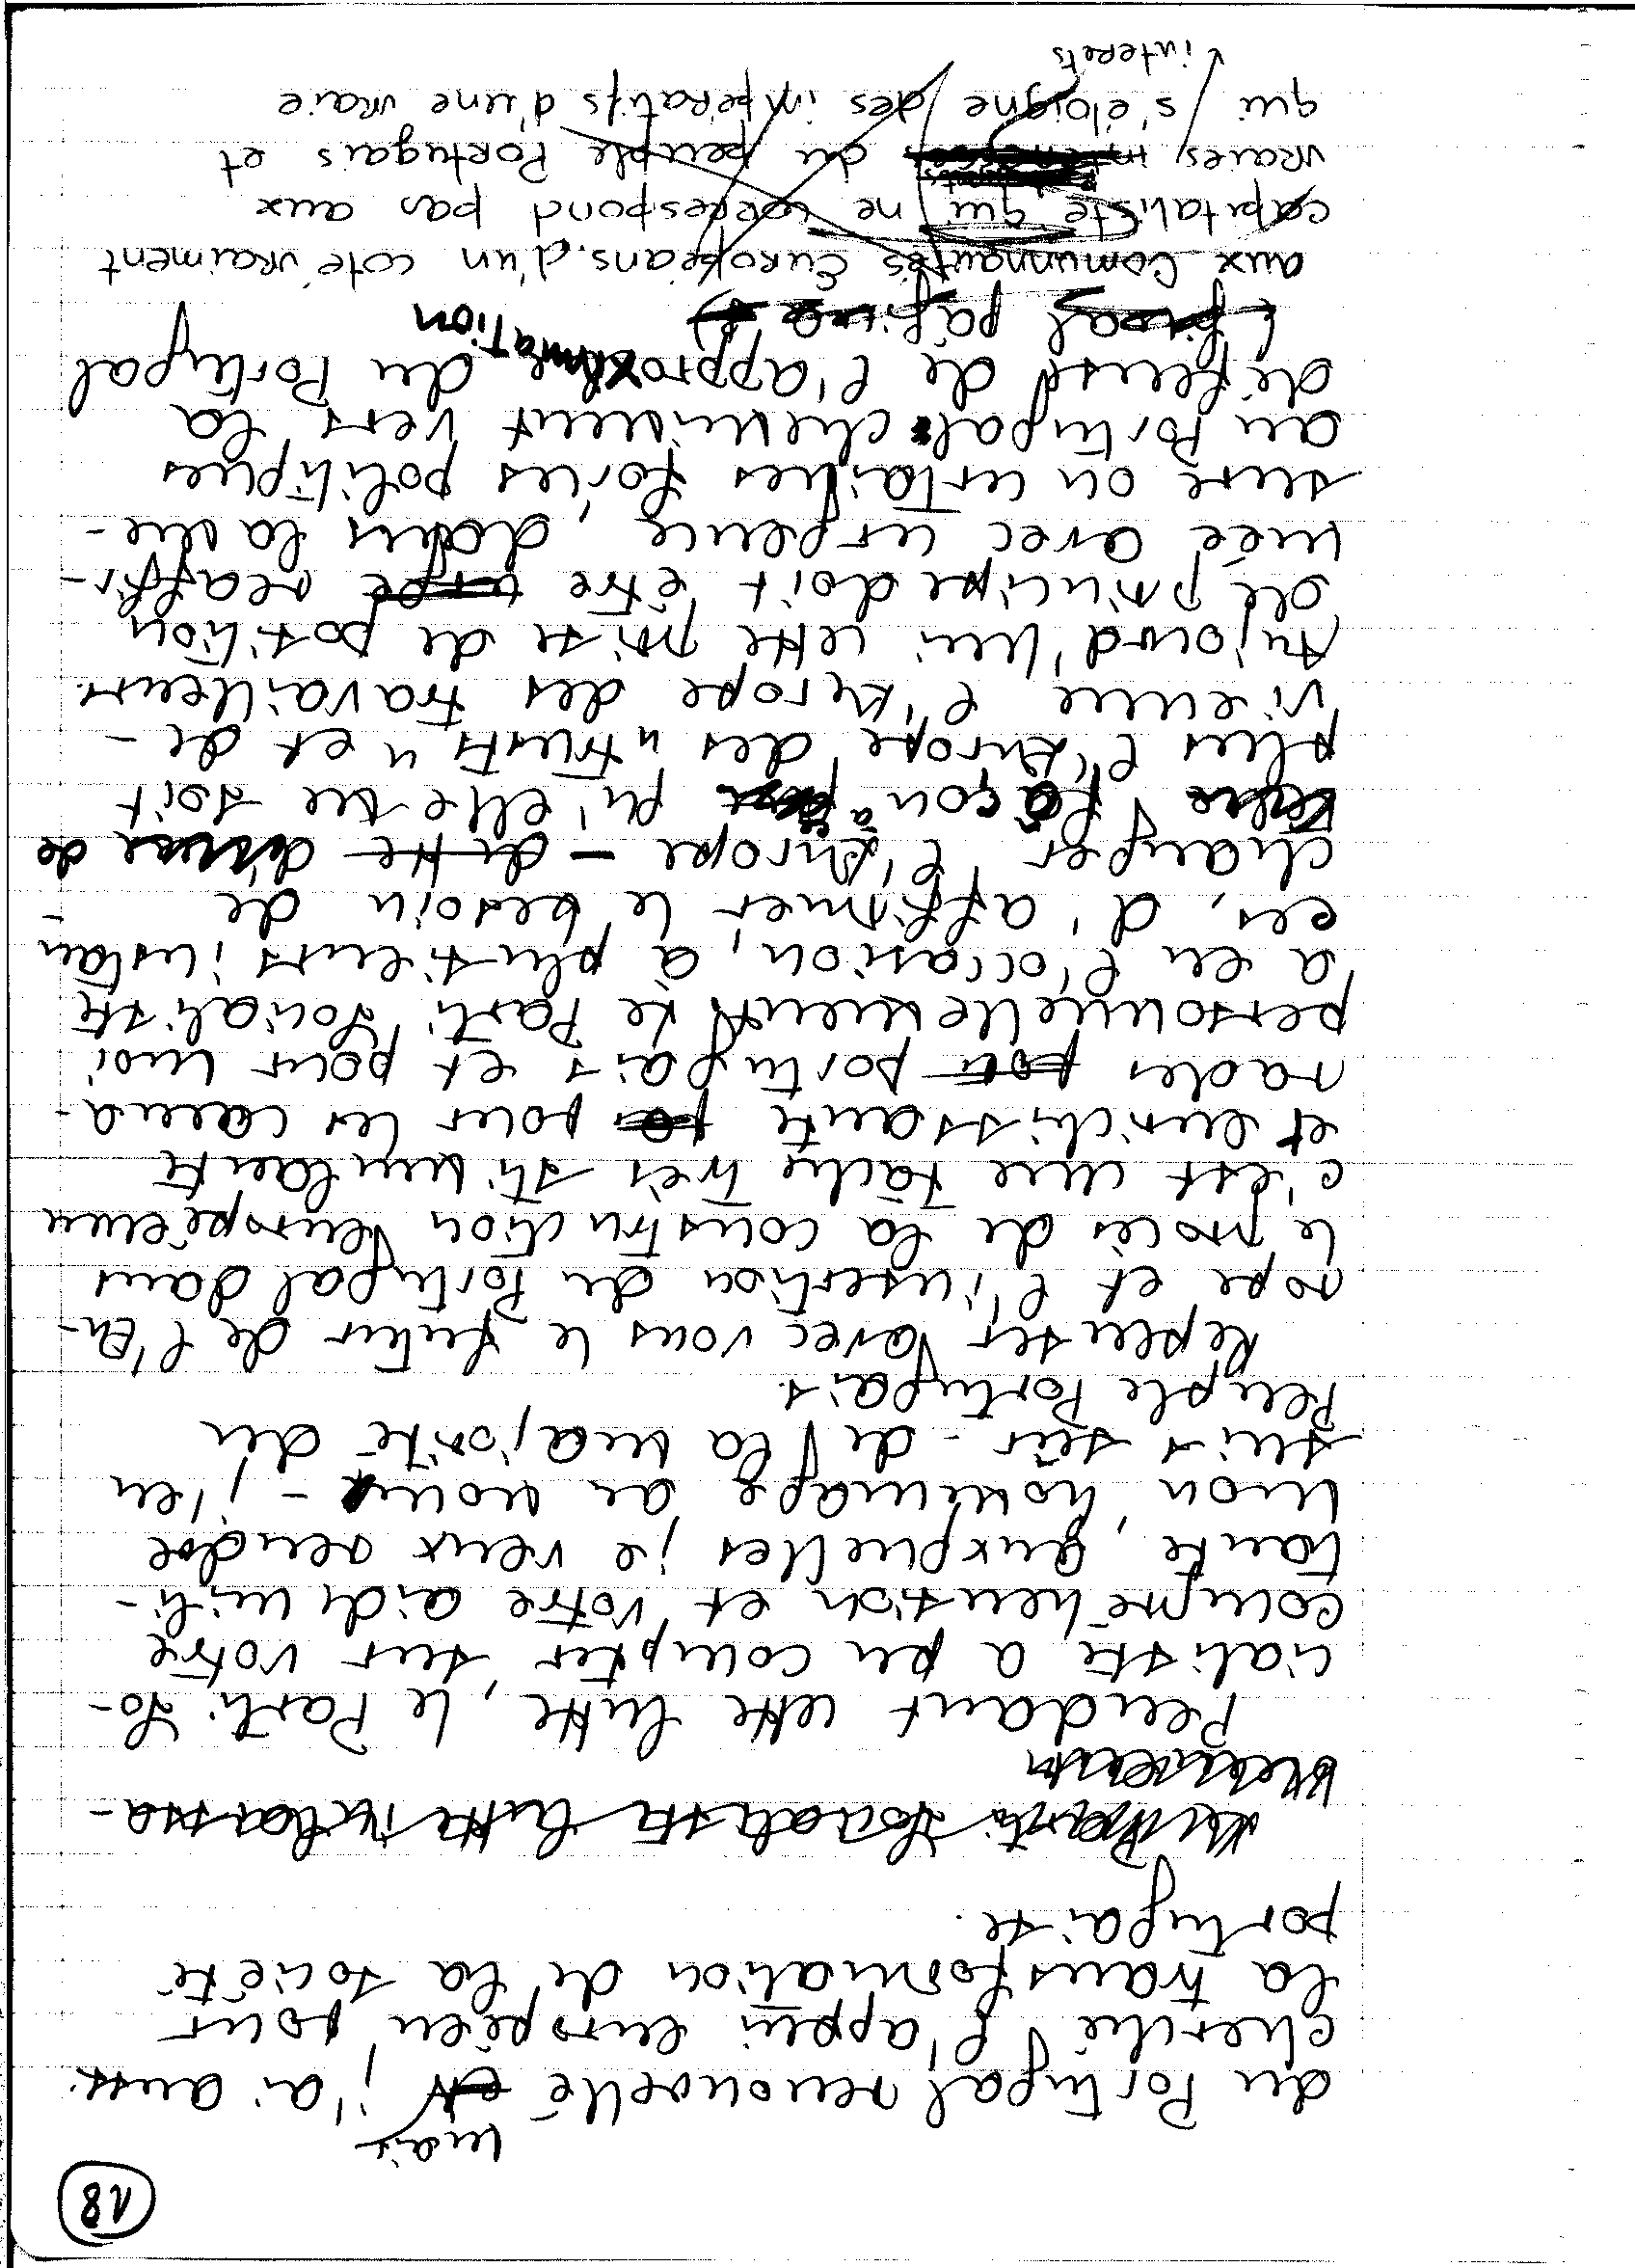 18
mais
du Portugal renouvellé et j'ai aussi
cherché l'appui européen pour
la transformation de la société
portugaise.
Le Parti Socialiste lutte inlassa-
blement
Pendant cette lutte, le Parti So-
cialiste a pu compter sur votre
compréhension et votre aide mili-
tante, auxquelles je veux rendre
mon hommage au nom - j'en
suis sûr - de la majorité du
Peuple Portugais.
Repenser avec vous le futur de l'Eu-
rope et l'insertion du Portugal dans
le procès de la construction européenne
c'est une tâche très stimulante
et enrichissante pour les cama-
rades portugais et pour moi
personnellement. Le Parti Socialiste
a eu l'occasion, à plusieurs instan-
ces, d'affirmer le besoin de
changer l'Europe - de
façon à qu'elle ne soit
plus l'Europe des "trusts" et de-
vienne l'Europe des travailleurs.
Aujourd'hui cette prise de position
de principe doit être réaffir-
mée avec urgence, dans la me-
sure où certaines forces politiques
au Portugal cheminent vers la
défense de l'approximation du Portugal
aux Communautés Européans. d'un coté vraiment
capitaliste qui ne correspond pas aux
vraies interets du peuple Portugais et
qui s'éloigne des impératifs d'une vraie